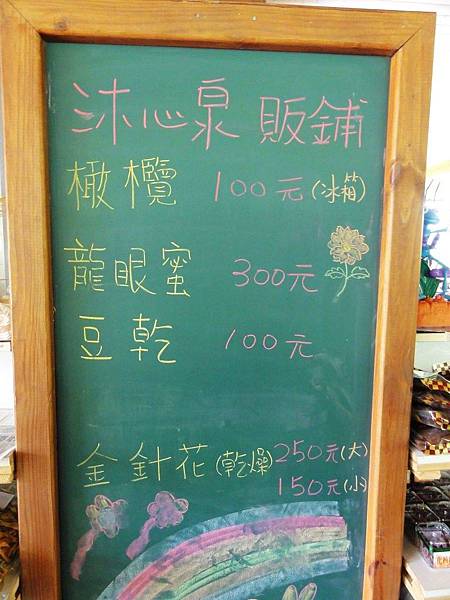 沐心泉 販鋪
橄欖 100元(冰箱)
龍眼蜜 300元
豆乾 100元
金針花(乾燥) 250元(大)
150元(小)